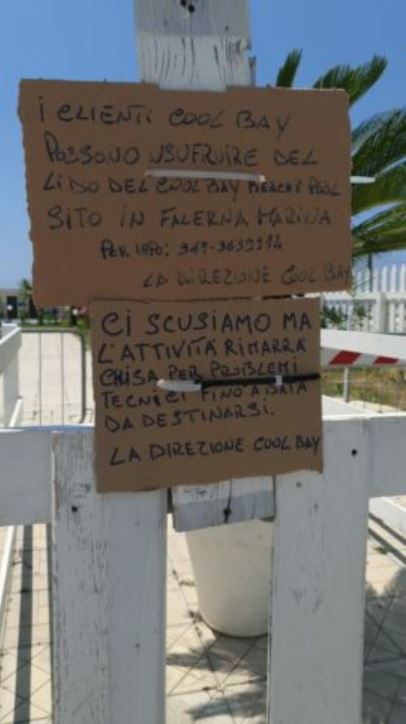 I CLIENTI COOL BAY
POSSONO USUFRUIRE DEL
LIDO DEL COOL BAY BEACH E POOL
SITO IN FALERNA MARINA
PER INFO:
LA DIREZIONE COOL BAY
CI SCUSIAMO MA
L'ATTIVITÀ RIMARRÀ
CHISA PER PROBLEMI
TECNICI FINO A DATA
DA DESTINARSI.
LA DIREZIONE COOL BAY